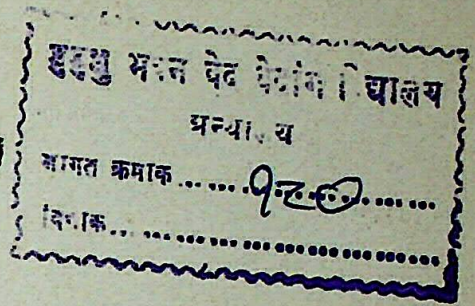 मुमुक्षु भवन वेद वेदांग विद्यालय
ग्रन्थालय
आगत क्रमाक......१८०......
दिनांक......